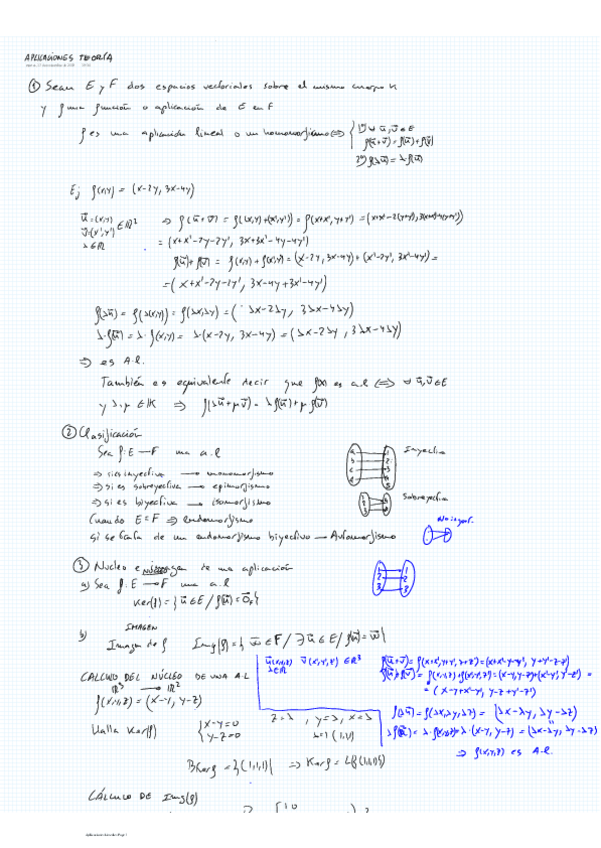 APLICACIONES TEORÍA
① Sean E y F dos espacios vectoriales sobre el mismo cuerpo K
y f una función o aplicación de E en F
f es una aplicación lineal o un homomorfismo ⇔ { 1º) ∀ u⃗, v⃗ ∈ E
f(u⃗+v⃗) = f(u⃗) + f(v⃗)
2º) f(λu⃗) = λ f(u⃗)
Ej f(x,y) = (x-2y, 3x-4y)
u⃗=(x,y)
v⃗=(x',y') ∈ ℝ²
λ∈ℝ
⇒ f(u⃗+v⃗) = f((x,y)+(x',y')) = f(x+x', y+y') = (x+x'-2(y+y'), 3(x+x')-4(y+y'))
= (x+x'-2y-2y', 3x+3x'-4y-4y')
f(u⃗)+f(v⃗) = f(x,y)+f(x',y') = (x-2y, 3x-4y)+(x'-2y', 3x'-4y') =
= (x+x'-2y-2y', 3x-4y+3x'-4y')
f(λu⃗) = f(λ(x,y)) = f(λx,λy) = (λx-2λy, 3λx-4λy)
λ·f(u⃗) = λ·f(x,y) = λ·(x-2y, 3x-4y) = (λx-2λy, 3λx-4λy)
⇒ es A.l.
También es equivalente decir que f(x) es a.l ⇔ ∀ u⃗,v⃗∈E
y λ,μ ∈ K ⇒ f(λu⃗+μv⃗) = λf(u⃗)+μf(v⃗)
② Clasificación
Sea f: E → F una a.l
⇒ si es inyectiva → monomorfismo
⇒ si es sobreyectiva → epimorfismo
⇒ si es biyectiva → isomorfismo
Cuando E=F ⇒ endomorfismo
Si se trata de un endomorfismo biyectivo → Automorfismo
Inyectiva
Sobreyectiva
No inyect.
③ Nucleo e imagen de una aplicación
a) Sea f: E → F una a.l
Ker(f) = { u⃗ ∈ E / f(u⃗) = 0⃗F }
IMAGEN
b) Imagen de f Img(f) = { w⃗ ∈ F / ∃ u⃗ ∈ E / f(u⃗) = w⃗ }
CALCULO DEL NÚCLEO DE UNA A.L
ℝ³ → ℝ²
f(x,y,z) = (x-y, y-z)
Halla Ker(f) { x-y=0
y-z=0
z=λ, y=λ, x=λ
λ=1 (1,1,1)
BKerf = {(1,1,1)} ⇒ Kerf = L{(1,1,1)}
u⃗(x,y,z) v⃗(x',y',z') ∈ ℝ³
λ∈ℝ
f(u⃗+v⃗) = f(x+x', y+y', z+z') = (x+x'-y-y', y+y'-z-z')
f(u⃗)+f(v⃗) = f(x,y,z)+f(x',y',z') = (x-y, y-z)+(x'-y', y'-z') =
= (x-y+x'-y', y-z+y'-z')
f(λu⃗) = f(λx,λy,λz) = (λx-λy, λy-λz)
λf(u⃗) = λ·f(x,y,z) = λ·(x-y, y-z) = (λx-λy, λy-λz)
⇒ f(x,y,z) es A.l.
CÁLCULO DE Img(f)